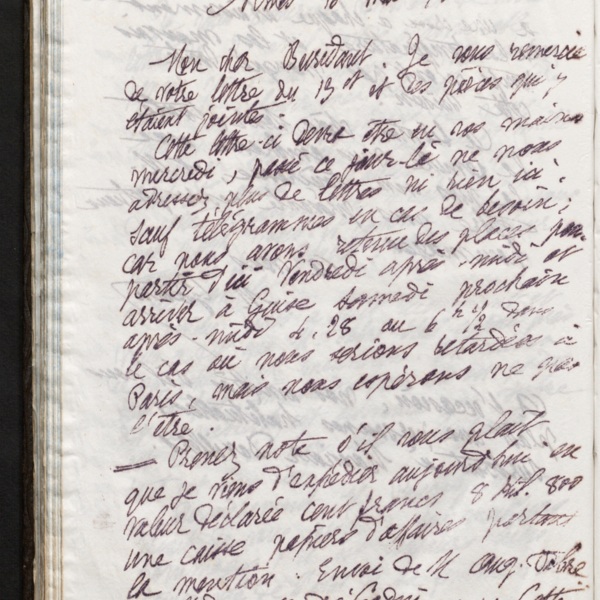 Mon cher Buridant. Je vous remercie
de votre lettre du 13 ct et des pièces qui y
étaient jointes.
Cette lettre-ci devra être en vos mains
mercredi, passé ce jour-là ne nous
adressez plus de lettres ni rien ici.
sauf télégrammes en cas de besoin;
car nous avons retenu des places pour
partir d'ici Vendredi après-midi et
arriver à Guise samedi prochain
après-midi 4.28 ou 6 h ½ dans
le cas où nous serions retardés à
Paris, mais nous espérons ne pas
l'être.
Prenez note s'il vous plaît
que je viens d'expédier aujourd'hui en
valeur déclarée cent francs 8 kil. 800
une caisse papiers d'affaires portant
la mention. Envoi de M